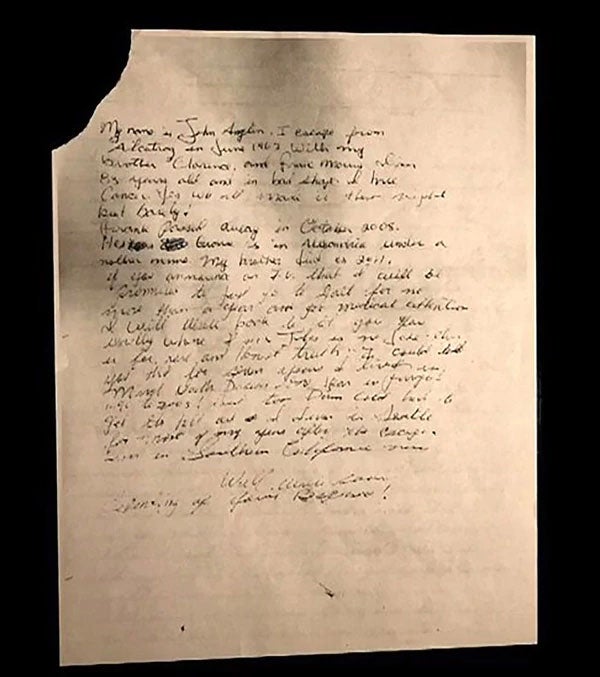 My name is John Anglin. I escape from
Alcatraz in June 1962 with my
brother Clarence, and Frank Morris. I'm
83 years old and in bad shape. I have
Cancer. Yes we all made it that night
but barely!
Frank Passed away in October 2008.
His Grave is in under a
nother name. My brother died in 2011.
if you announce on T.V. that I will be
Promised to first go to Jail for no
more than a year and get medical attention
I will write back to let you know
exactly where I am. This is no joke this
is for real and honest truth. I could tell
you that for seven years I lived in
Minot North Dakota and year in Fargo
till 2003!
for most of my years after the escape.
live in Southern California now